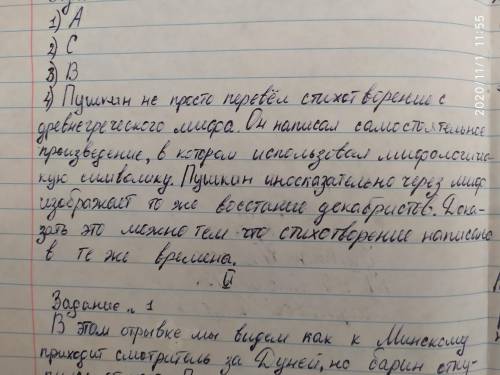 1) А
2) С
3) В
4) Пушкин не просто перевёл стихотворение с
древнегреческого мифа. Он написал самостоятельное
произведение, в котором использовал мифологичес-
кую символику. Пушкин иносказательно через миф
изображает то же восстание декабристов. Дока-
зать это можно тем что стихотворение написано
в те же времена.
II
Задание 1
В этом отрывке мы видем как к Минскому
приходит смотритель за Дуней, но барин
2020/11/1 11:55